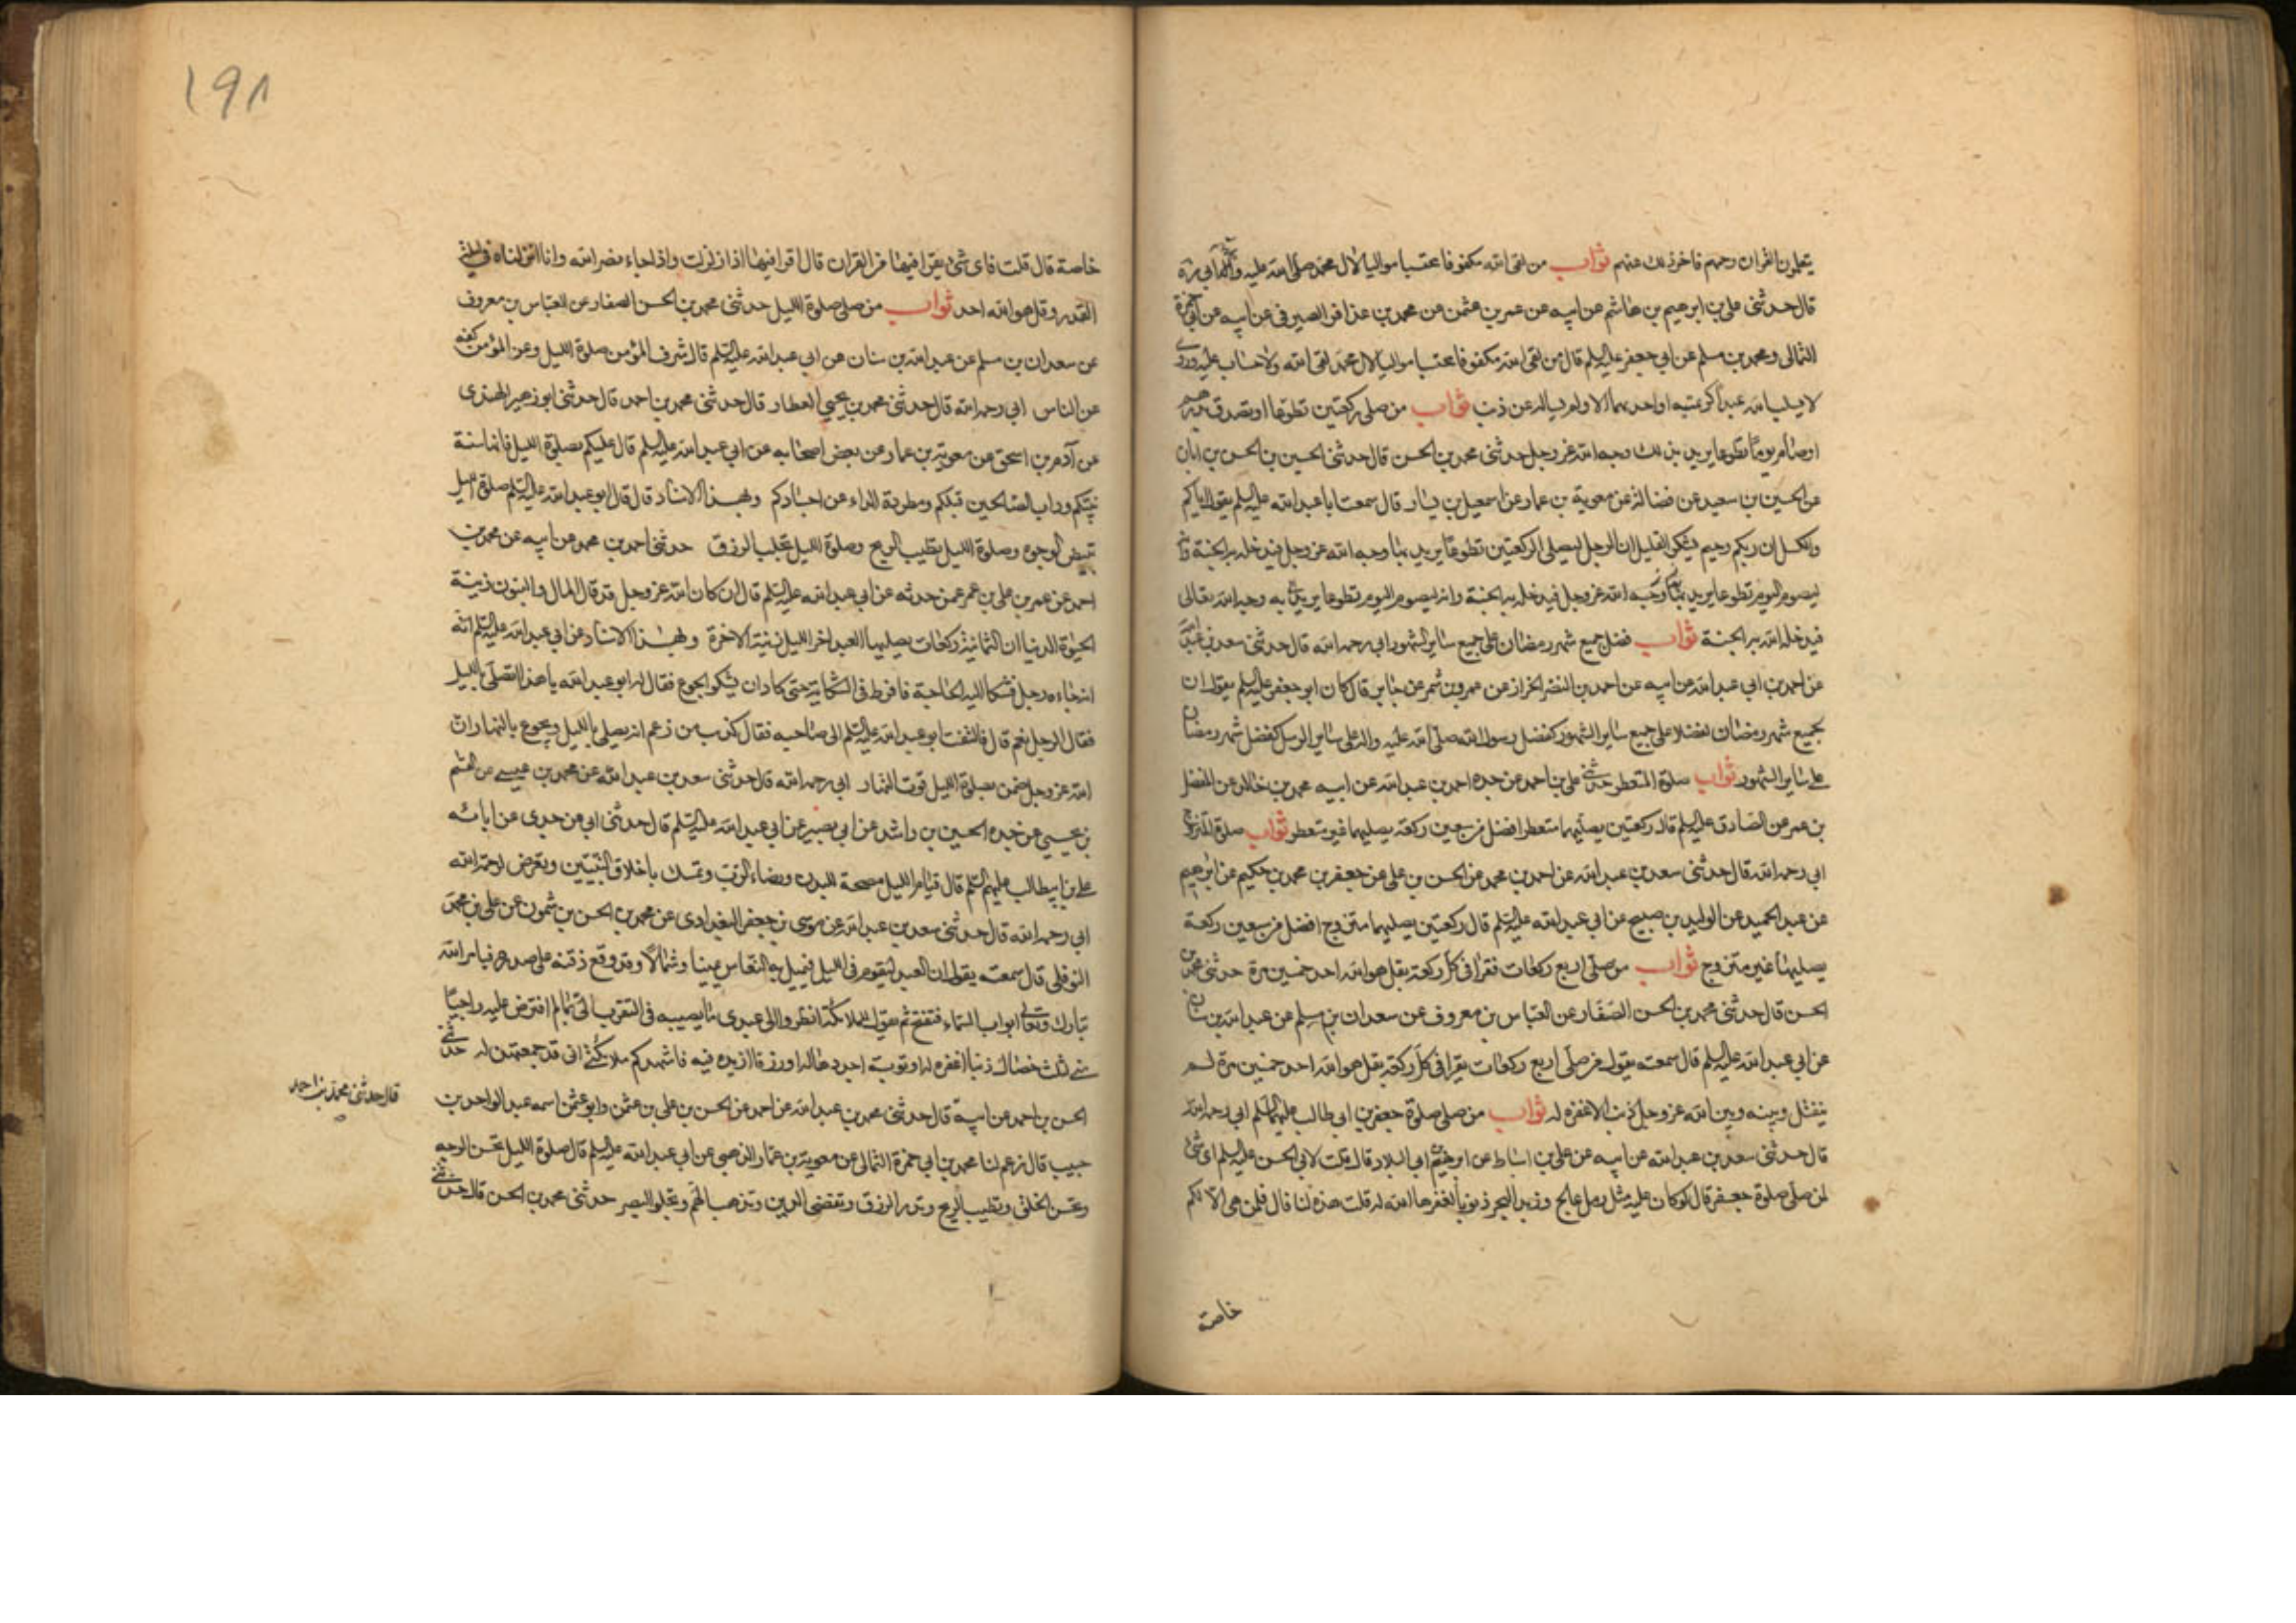 يتعلمون القران رحمهم فاخر ذلك عنهم ثواب من لقى الله مكفوفا محتسبا مواليا لال محمد صلى الله عليه وآله ابى ره
قال حدثنى على بن ابرهيم بن هاشم عن ابيه عن عمر بن عثمن عن محمد بن عذافر الصيرفى عن ابيه عن ابى حمزة
الثمالى ومحمد بن مسلم عن ابى جعفر عليه السلم قال من لقى الله مكفوفا محتسبا مواليا لال محمد لقى الله ولا حساب عليه وروى
لا يسلب الله عبدا كريمتيه او احديهما الا ولم يساله عن ذنب ثواب من صلى ركعتين تطوعا او تصدق بدرهم
او صام يوما تطوعا يريد بذلك وجه الله عز وجل حدثنى محمد بن الحسن قال حدثنى الحسين بن الحسن بن ابان
عن الحسين بن سعيد عن فضالة عن معوية بن عمار عن اسمعيل بن يسار قال سمعت ابا عبد الله عليه السلم يقول اياكم
والكسل ان ربكم رحيم يشكر القليل ان الرجل ليصلى الركعتين تطوعا يريد بها وجه الله عز وجل فيدخله به الجنة وانه
ليصوم اليوم تطوعا يريد به وجه الله عز وجل فيدخله به الجنة وانه ليصوم اليوم تطوعا يريد به وجه الله تعالى
فيدخله الله به الجنة ثواب فضل جميع شهر رمضان على جميع ساير الشهور ابى رحمه الله قال حدثنى سعد بن عبد الله
عن احمد بن ابى عبد الله عن ابيه عن احمد بن النضر الخزاز عن عمرو بن شمر عن جابر قال كان ابو جعفر عليه السلم يقول ان
لجميع شهر رمضان لفضلا على جميع ساير الشهور كفضل رسول الله صلى الله عليه واله على ساير الرسل كفضل شهر رمضان
على ساير الشهور ثواب صلوة المتعطر حدثنى على بن احمد عن جده احمد بن عبد الله عن ابيه محمد بن خالد عن المفضل
بن عمر عن الصادق عليه السلم قال ركعتين يصليهما متعطر افضل من سبعين ركعة يصليهما غير متعطر ثواب صلوة المتزوج
ابى رحمه الله قال حدثنى سعد بن عبد الله عن احمد بن محمد عن الحسن بن على عن جعفر بن محمد بن حكيم عن ابراهيم
عن عبد الحميد عن الوليد بن صبيح عن ابى عبد الله عليه السلم قال ركعتين يصليهما متزوج افضل من سبعين ركعة
يصليها غير متزوج ثواب من صلى اربع ركعات فقرا فى كل ركعة بقل هو الله احد خمسين مرة حدثنى محمد بن
الحسن قال حدثنى محمد بن الحسن الصفار عن العباس بن معروف عن سعدان بن مسلم عن عبد الله بن سنان
عن ابى عبد الله عليه السلم قال سمعته يقول من صلى اربع ركعات يقرا فى كل ركعة بقل هو الله احد خمسين مرة لم
ينفتل وبينه وبين الله عز وجل ذنب الا غفره له ثواب من صلى صلوة جعفر بن ابى طالب عليهما السلم ابى رحمه الله
قال حدثنى سعد بن عبد الله عن ابيه عن على بن اسباط عن ابرهيم بن ابى البلاد قال قلت لابى الحسن عليه السلم اى شئ
لمن صلى صلوة جعفر قال لو كان عليه مثل رمل عالج وزبد البحر ذنوبا لغفرها الله له قلت هذه لنا قال فلمن هى الا لكم
خاصة
١٩٨
خاصة قال قلت فاى شئ يقرا فيها من القران قال اقرا فيها اذا زلزلت واذا جاء نصر الله وانا انزلناه فى ليلة
القدر وقل هو الله احد ثواب من صلى صلوة الليل حدثنى محمد بن الحسن الصفار عن العباس بن معروف
عن سعدان بن مسلم عن عبد الله بن سنان عن ابى عبد الله عليه السلم قال شرف المؤمن صلوة الليل وعز المؤمن كفه
عن الناس ابى رحمه الله قال حدثنى محمد بن يحيى العطار قال حدثنى محمد بن احمد قال حدثنى ابو زهير النهدى
عن آدم بن اسحق عن معوية بن عمار عن بعض اصحابه عن ابى عبد الله عليه السلم قال عليكم بصلوة الليل فانها سنة
نبيكم وداب الصالحين قبلكم ومطردة الداء عن اجسادكم وبهذا الاسناد قال قال ابو عبد الله عليه السلم صلوة الليل
تبيض الوجوه وصلوة الليل تطيب الريح وصلوة الليل تجلب الرزق حدثنى احمد بن محمد عن ابيه عن محمد بن
احمد عن عمر بن على بن عمر عمن حدثه عن ابى عبد الله عليه السلم قال ان كان الله عز وجل قد قال المال والبنون زينة
الحيوة الدنيا ان الثمانية ركعات يصليها العبد اخر الليل زينة الاخرة وبهذا الاسناد عن ابى عبد الله عليه السلم انه
انه جاءه رجل فشكا اليه الحاجة فافرط فى الشكاية حتى كاد ان يشكو الجوع فقال له ابو عبد الله يا هذا اتصلى بالليل
فقال الرجل نعم قال فالتفت ابو عبد الله عليه السلم الى صاحبه فقال كذب من زعم انه يصلى بالليل ويجوع بالنهار ان
الله عز وجل ضمن بصلوة الليل قوت النهار ابى رحمه الله قال حدثنى سعد بن عبد الله عن محمد بن عيسى عن القسم
بن يحيى عن جده الحسين بن راشد عن ابى بصير عن ابى عبد الله عليه السلم قال حدثنى ابى عن جدى عن ابائه
على بن ابيطالب عليهم السلم قال قيام الليل مصحة للبدن ورضاء الرب وتمسك باخلاق النبيين وتعرض لرحمة الله
ابى رحمه الله قال حدثنى سعد بن عبد الله عن موسى بن جعفر البغدادى عن محمد بن الحسن بن شمون عن على بن محمد
النوفلى قال سمعته يقول ان العبد ليقوم فى الليل فيميل به النعاس يمينا وشمالا وقد وقع ذقنه على صدره فيامر الله
تبارك وتعالى ابواب السماء فتفتح ثم يقول للملائكة انظروا الى عبدى ما يصيبه فى التقرب الى بما لم افترض عليه راجيا
منى لثلث خصال ذنبا اغفره له او توبة اجددها له او رزقا ازيده فيه فاشهدكم ملائكتى انى قد جمعتهن له حدثنى
الحسن بن احمد عن ابيه قال حدثنى محمد بن عبد الله عن احمد عن الحسن بن على بن عثمن وابو عثمن اسمه عبد الواحد بن
قال حدثنى محمد بن احمد
حبيب قال زعم لنا محمد بن ابى حمزة الثمالى عن معوية بن عمار الدهنى عن ابى عبد الله عليه السلم قال صلوة الليل تحسن الوجه
وتحسن الخلق وتطيب الريح وتدر الرزق وتقضى الدين وتذهب الهم وتجلو البصر حدثنى محمد بن الحسن قال حدثنى